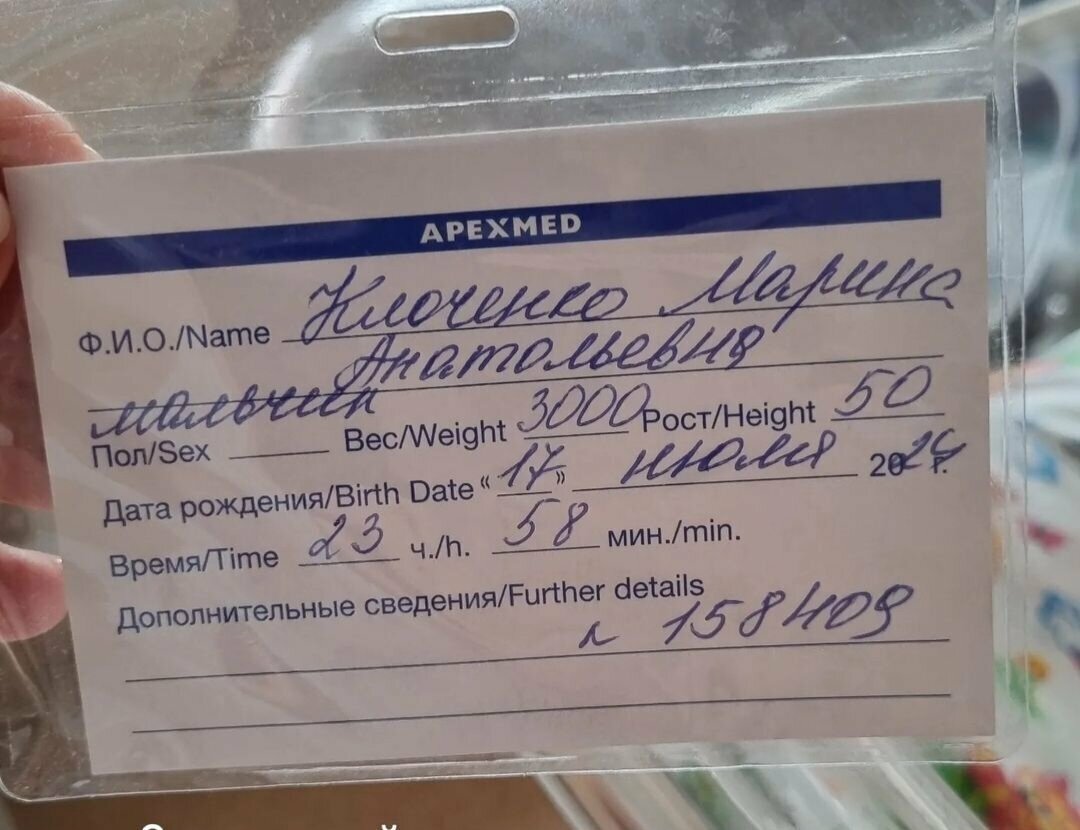 APEXMED
Ф.И.О./Name Клоченко Марина
Анатольевна
мальчик
Пол/Sex Вес/Weight 3000 Рост/Height 50
Дата рождения/Birth Date "17" июля 2024 г.
Время/Time 23 ч./h. 58 мин./min.
Дополнительные сведения/Further details
л 158409